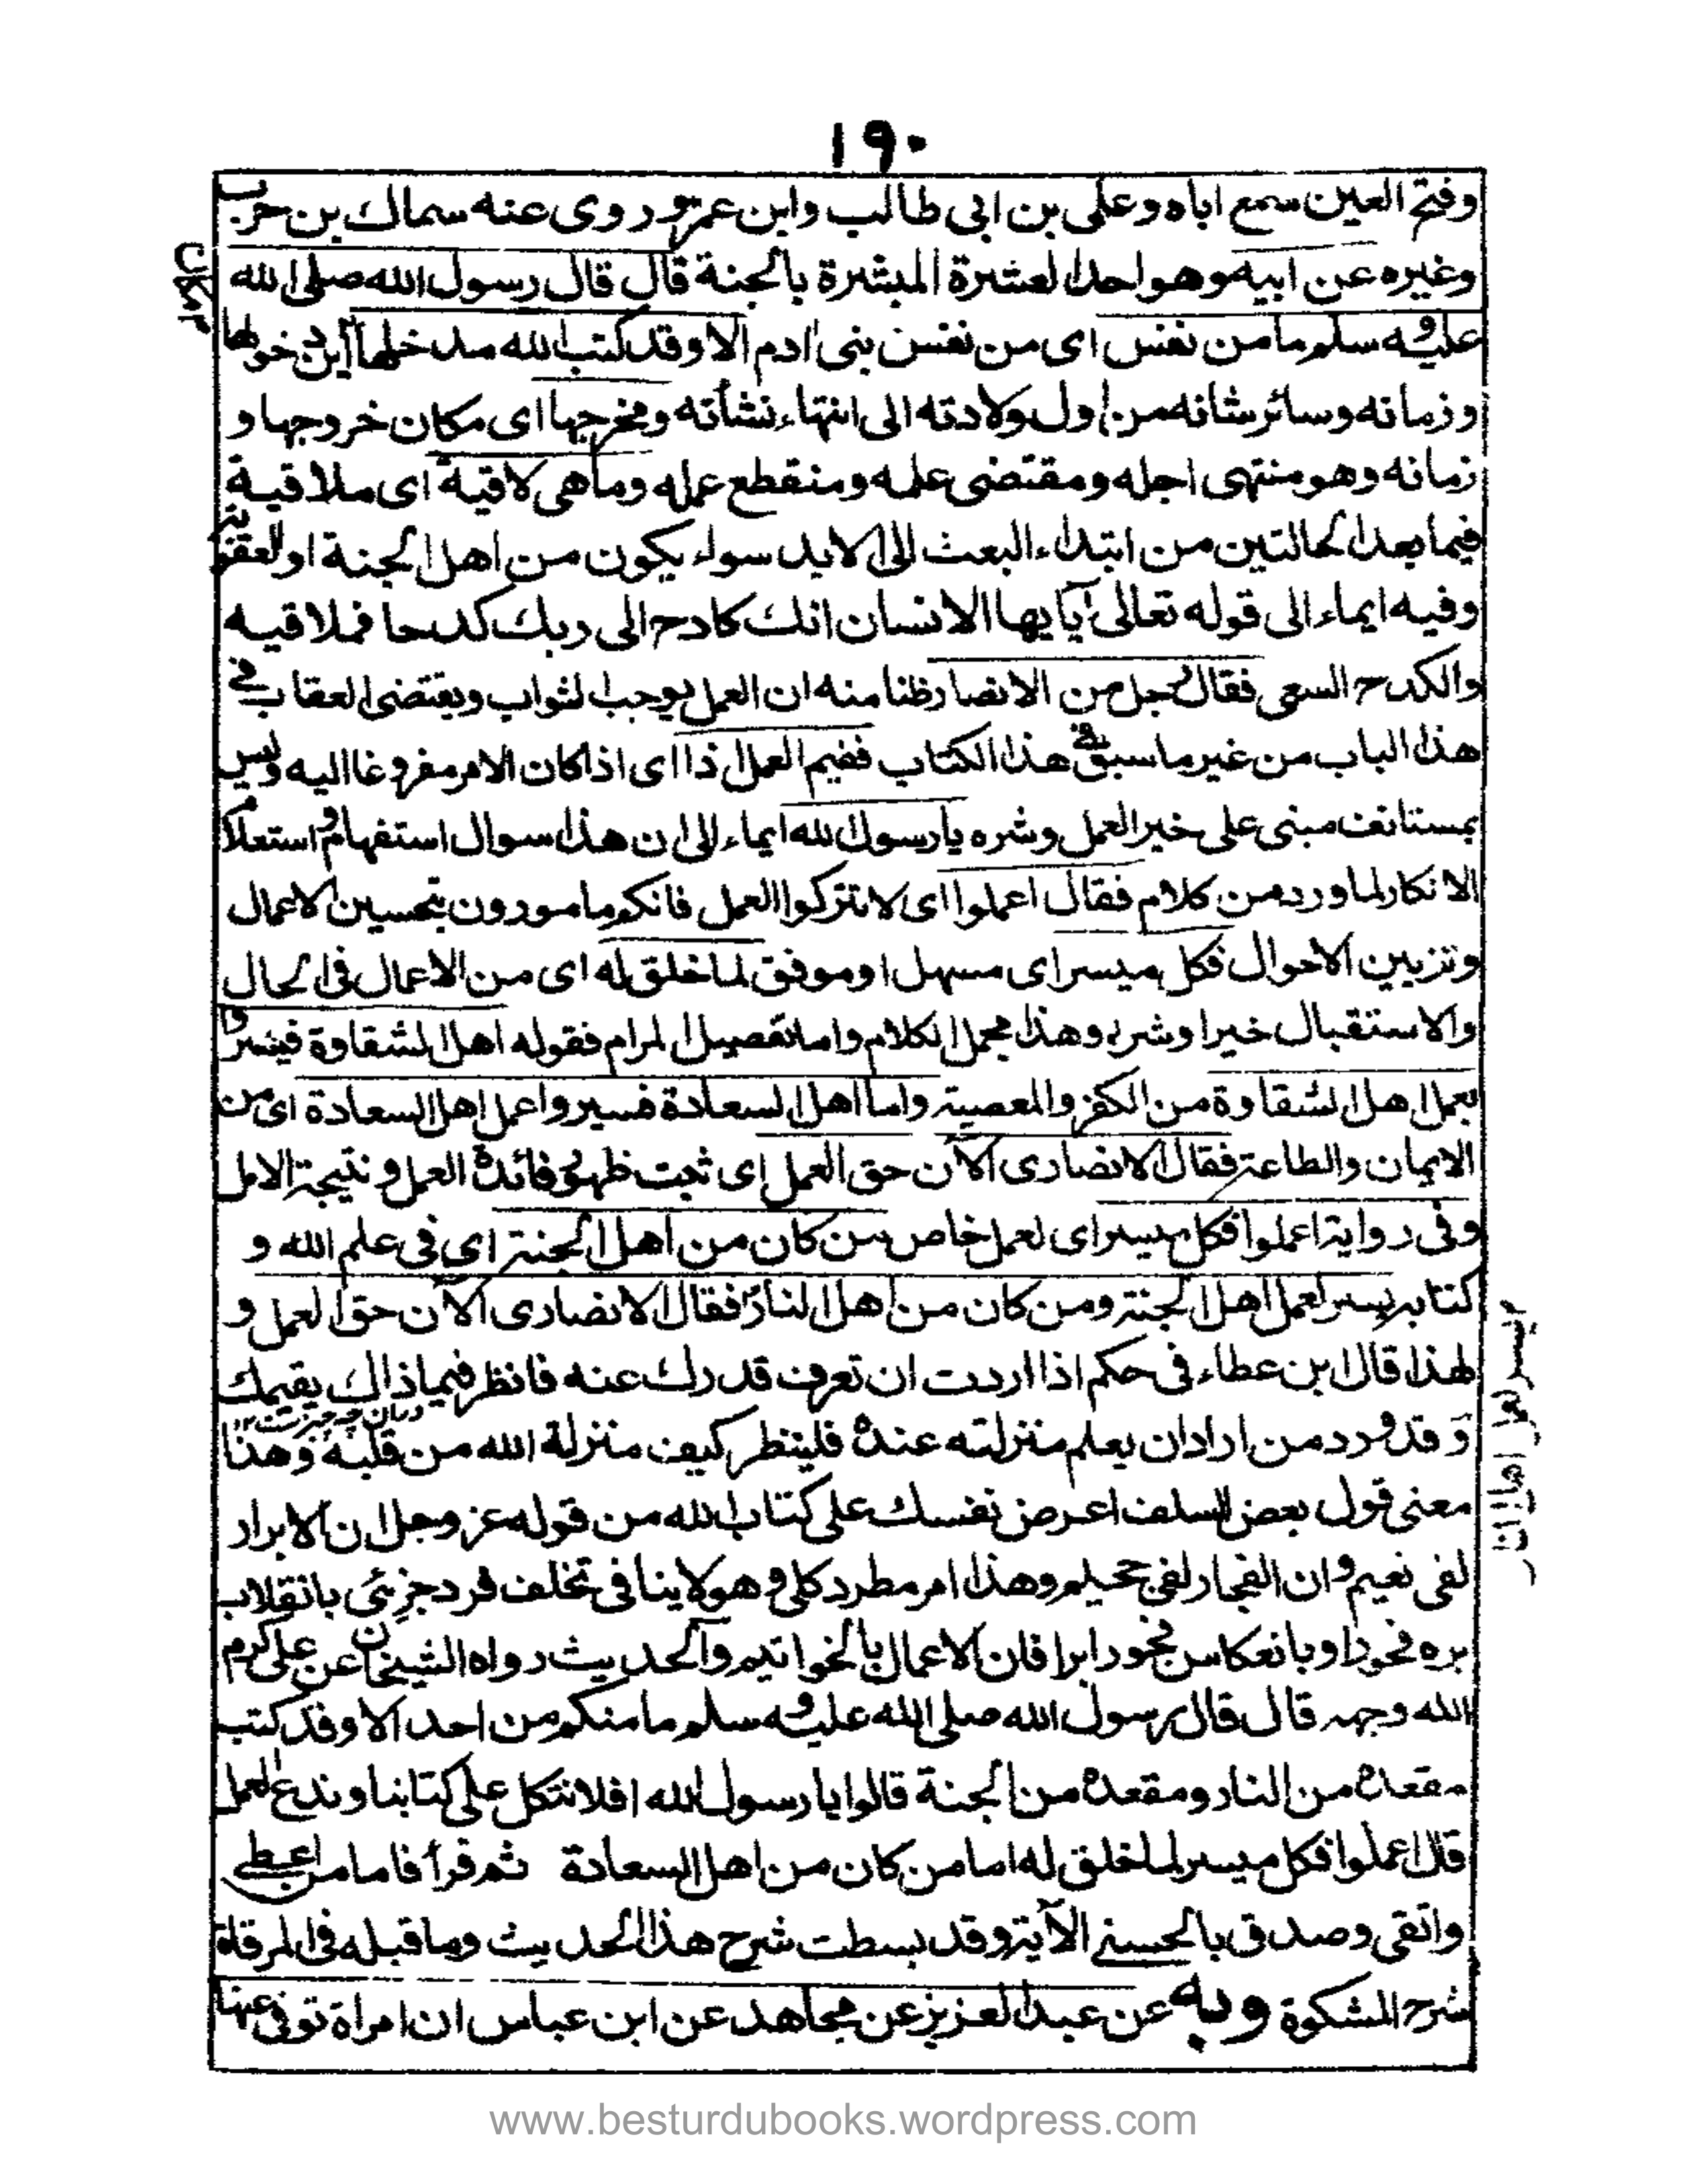 ١٩٠
وفتح العين سمع اباه وعلى بن ابى طالب وابن عمر وروى عنه سماك بن حرب
وغيره عن ابيه وهو احد العشرة المبشرة بالجنة قال قال رسول الله صلى الله
عليه وسلم ما من نفس اى من نفس بنى ادم الا وقد كتب الله مدخلها اين دخولها
وزمانه وسائر شانه من اول ولادته الى انتهاء نشأته ومخرجها اى مكان خروجها و
زمانه وهو منتهى اجله ومقتضى علمه ومنقطع عمله وما هى لاقية اى ملاقية
فيما بعد الحالتين من ابتداء البعث الى الابد سواء يكون من اهل الجنة او العقوبة
وفيه ايماء الى قوله تعالى آيايها الانسان انك كادح الى ربك كدحا فملاقيه
والكدح السعى فقال رجل من الانصار ظنا منه ان العمل يوجب الثواب ويقتضى العقاب فى
هذا الباب من غير ما سبق فى هذا الكتاب ففيم العمل اذا اى اذا كان الامر مفروغا اليه وليس
بمستانف مبنى على خير العمل وشره يا رسول الله ايماء الى ان هذا سوال استفهام واستعلام
الانكار لما ورد من كلام فقال اعملوا اى لا تتركوا العمل فانكم مامورون بتحسين الاعمال
وتزيين الاحوال فكل ميسر اى مسهل او موفق لما خلق له اى من الاعمال فى الحال
والاستقبال خيرا وشرا وهذا مجمل الكلام واما تفصيل المرام فقوله اهل الشقاوة فيسروا
بعمل اهل الشقاوة من الكفر والمعصية واما اهل السعادة فيسروا عمل اهل السعادة اى من
الايمان والطاعة فقال الانصارى الآن حق العمل اى ثبت ظهور فائدة العمل و نتيجة الامل
وفى رواية اعملوا فكل ميسر اى لعمل خاص من كان من اهل الجنة اى فى علم الله و
كتابه يسر لعمل اهل الجنة ومن كان من اهل النار فقال الانصارى الآن حق العمل و
يسر لعمل اهل النار
لهذا قال ابن عطاء فى حكم اذا اردت ان تعرف قدرك عنه فانظر فيما ذا ال يقيمك
و قد ورد من اراد ان يعلم منزلته عنده فلينظر كيف منزلة الله من قلبه وهذا
معنى قول بعض السلف اعرض نفسك على كتاب الله من قوله عز وجل ان الابرار
لفى نعيم وان الفجار لفى جحيم وهذا امر مطرد كلى وهو لا ينافى تخلف فرد جزئى بانقلاب
بره فجورا وبانعكاس فجور ابرا فان الاعمال بالخواتيم والحديث رواه الشيخان عن على كرم
الله وجهه قال قال رسول الله صلى الله عليه وسلم ما منكم من احد الا وقد كتب
مقعده من النار ومقعده من الجنة قالوا يا رسول الله افلا نتكل على كتابنا وندع العمل
قال اعملوا فكل ميسر لما خلق له اما من كان من اهل السعادة ثم قرأ فاما من اعطى
واتقى وصدق بالحسنى الآية وقد بسطت شرح هذا الحديث وما قبله فى المرقاة
شرح المشكوة وبه عن عبد العزيز عن مجاهد عن ابن عباس ان امراة توفى عنها
www.besturdubooks.wordpress.com